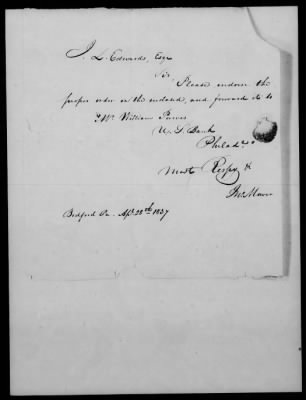 J. L. Edwards, Esqr
Sir,
Please endorse the
proper order on the enclosed, and forward it to
Wm. William
U. S. Bank
Philada
Most Respy &
Jno. Mower
Bedford Pa. Apl. 28th 1837